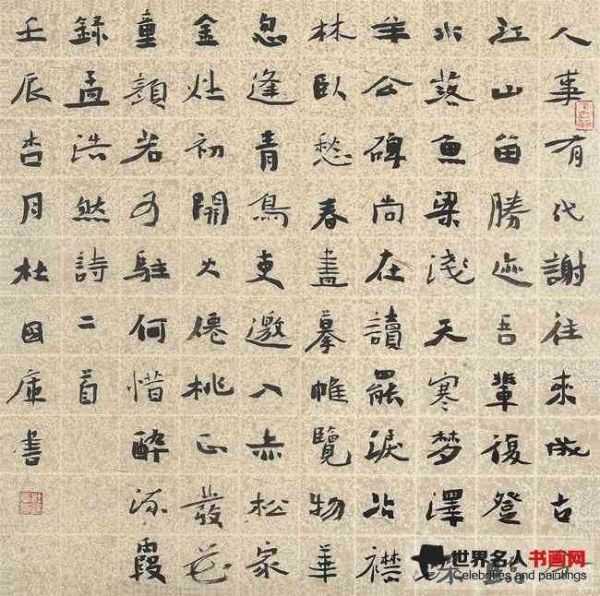 人事有代謝往來成古
江山留勝迹吾輩復登臨
水落魚梁淺天寒夢澤深
羊公碑尚在讀罷淚沾襟
林臥愁春盡搴帷覽物華
忽逢青鳥使邀入赤松家
金灶初開火僊桃正發花
童顏若可駐何惜醉流霞
錄孟浩然詩二首
壬辰杏月杜國庫書
世界名人书画网
Celebrities and paintings